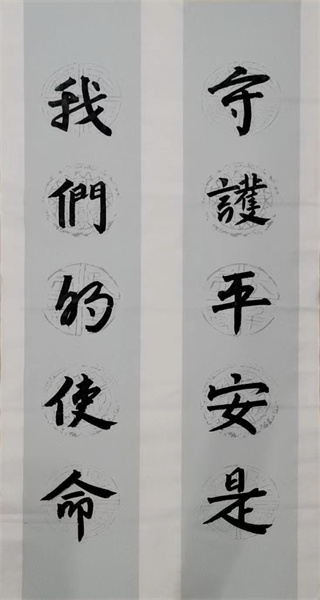 守護平安是
我們的使命